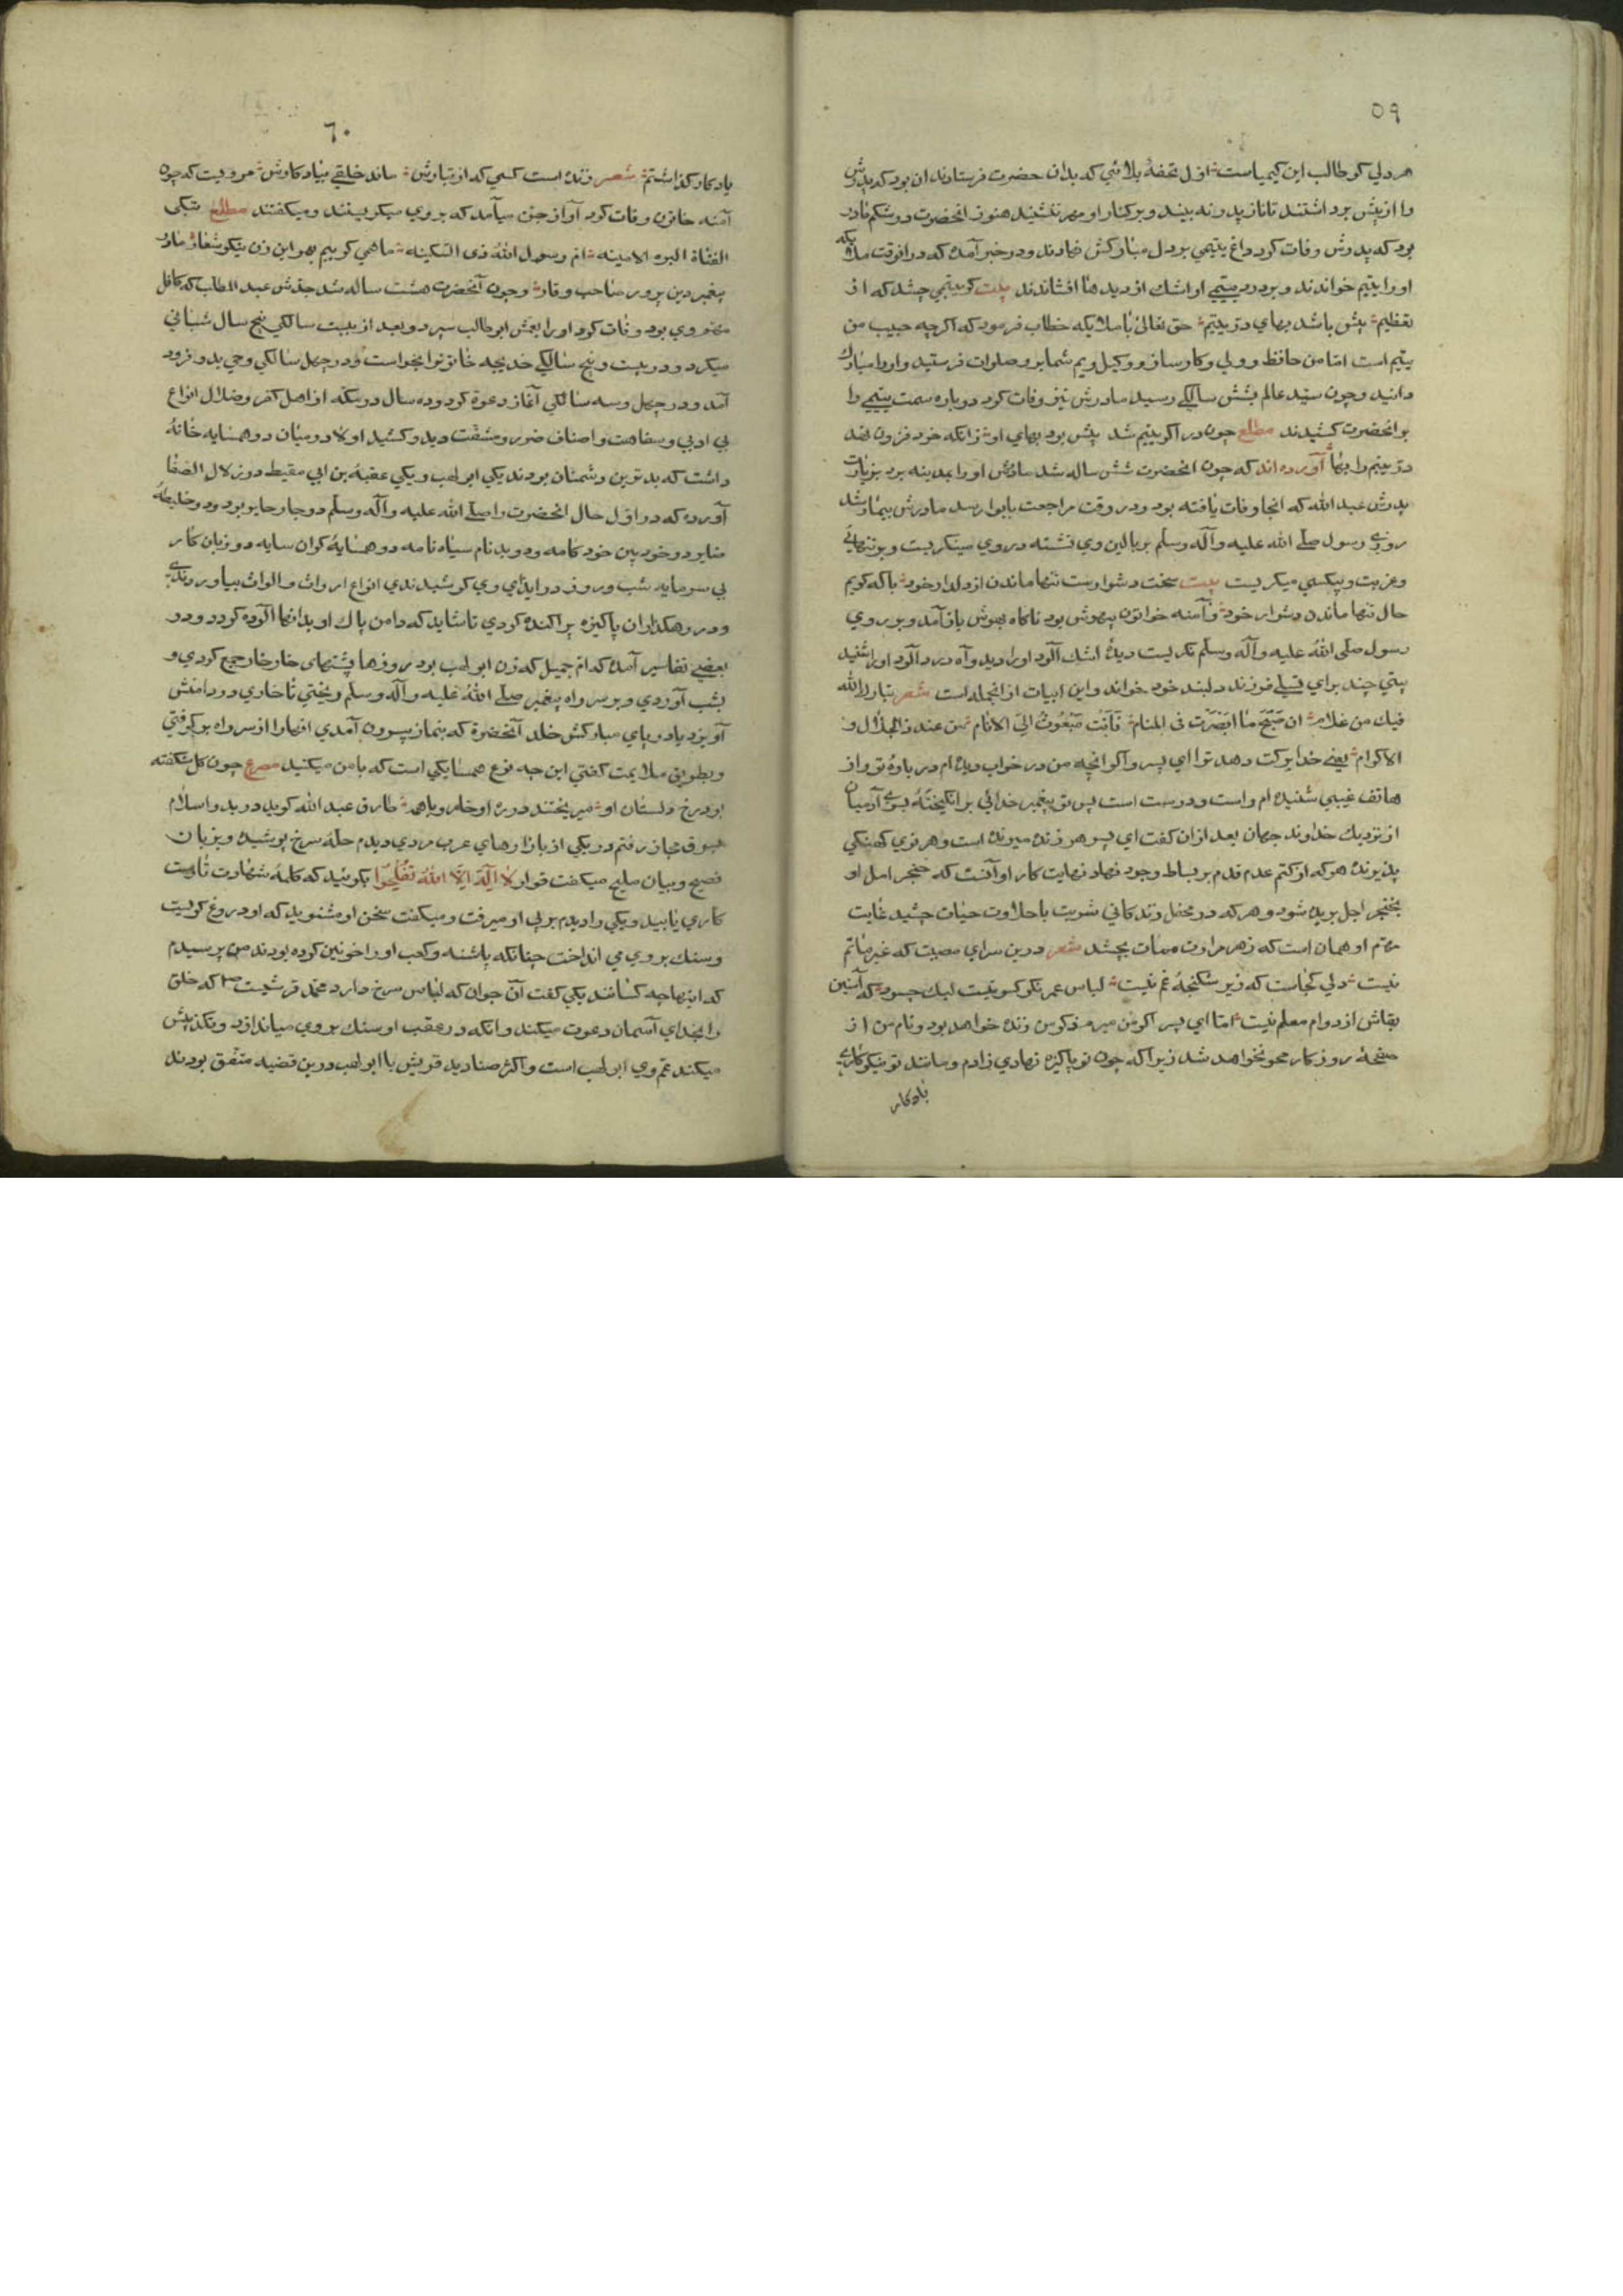 ٥٩
هر دلي كو طالب اين كيمياست اول تحفهٔ بلائي كه بدان حضرت فرستادند ان بود كه پدرش
را از پيش برداشتند تا ناز پدر نه بيند و بر كنار او مهر ننشيند هنوز انحضرت در شكم مادر
بود كه پدرش وفات كرد داغ يتيمي بر دل مباركش نهادند و در خبر آمده كه در انوقت ملائكه
او را يتيم خواندند و بر درد يتيمے او اشك از ديدها افشاندند بيت كر يتيمي چشد كه از
تعظيم بيش باشد بهاي در يتيم حق تعالىٰ با ملايكه خطاب فرمود كه اكرچه حبيب من
يتيم است اما من حافظ و ولي و كارساز و وكيل ويم شما بر و صلوات فرستيد و او را مبارك
دانيد و چون سيّد عالم بشش سالكے رسيد مادرش نيز وفات كرد دوباره سمت يتيمے را
بر انحضرت كشيدند مطلع چون در اكر يتيم شد بيش بود بهاي او زانكه خرد فزون نهد
در يتيم را بها آورده اند كه چون انحضرت شش ساله شد مادرش او را بمدينه برد بزيارت
پدرش عبد الله كه انجا وفات يافته بود و در وقت مراجعت بابوا رسيد مادرش بيمار شد
روزے رسول صلے الله عليه وآله وسلم بر بالين وي نشسته در روي مينكريست و بر تنهائے
و غربت و بيكسي ميكريست بيت سخت دشوارست تنها ماندن از دلدار خود با كه كويم
حال تنها ماندن دشوار خود و آمنه خواتون بيهوش بود ناكاه بهوش باز آمد و بر روي
رسول صلى الله عليه وآله وسلم نكريست ديدهٔ اشك آلود او را ديد و آه درد آلود او را شنيد
بيتي چند براي تسلے فرزند دلبند خود خواند و اين ابيات از انجمله است شعر تبارك الله
فيك من غلام ان صَحَّ ما ابصَرْت فى المنام فَاَنْتَ مَبْعُوثٌ الىَ الانام من عند ذالجلال و
الاكرام يعنے خدا بركت دهد ترا اي پسر و اكر انچه من در خواب ديده ام در بارهٔ تو و از
هاتف غيبي شنيده ام راست و درست است پس تو پيغمبر خدائي بر انكيختهٔ بسوے آدميان
از نزديك خداوند جهان بعد ازان كفت اي پسر هر زنده ميرنده است و هر نوي كهنكي
پذيرنده هر كه از كتم عدم قدم بر بساط وجود نهاد نهايت كار او آنست كه حنجر امل او
بخنجر اجل بريده شود و هر كه در محفل زندكاني شربت با حلاوت حيات چشيد غايت
مهتم او همان است كه زهر مرارت ممات بچشد شعر درين سراي مصيبت كه غير ماتم
نيست دلي كجاست كه زير شكنجهٔ غم نيست لباس عمر نكو كسوتيست ليك چسود كه آستين
بقاش از دوام معلم نيست اما اي پسر اكر من ميرم ذكر من زنده خواهد بود و نام من از
صفحهٔ روزكار محو نخواهد شد زيرا كه چون تو پاكيزه نهادي زادم و مانند تو نيكوكارے
يادكار
٦٠
يادكار كذاشتم شعر زنده است كسي كه از تبارش ماند خلقے بياد كارش مرويست كه چون
آمنه خاتون وفات كرد آواز جن ميآمد كه بر وي ميكريستند و ميكفتند مطلع نبكى
الفتاة البره الامينه ام رسول الله ذى السكينه ما همي كرييم بهر اين زن نيكو شعار مادر
پيغمبر دين پرور صاحب وقار و چون آنحضرت هشت ساله شد جدش عبد المطلب كه كافل
مهم وي بود وفات كرد او را بعمش ابو طالب سپرد و بعد از بيست سالكي پنج سال شباني
ميكرد و در بيست و پنج سالكے خديجه خاتونرا بخواست و در چهل سالكي وحي بدو فرود
آمد و در چهل و سه سالكي آغاز دعوة كرد و ده سال در مكه از اهل كفر و ضلال انواع
بي ادبي و سفاهت و اصناف ضرر و مشقت ديد و كشيد اولا در ميان دو همسايه خانهٔ
داشت كه بدترين دشمنان بودند يكي ابو لهب و يكي عقبهٔ بن ابي مقيط در زلال الصفا
آورده كه در اول حال انحضرت را صلے الله عليه وآله وسلم دو جار جابر بود و دو خليطهٔ
ضاير دو خود بين خود كامه و دو بد نام سياه نامه دو همسايهٔ كران سايه دو زيان كار
بي سرمايه شب و روز در ايذاي وي كوشيدندي انواع ارواث و الواث بياوردندے
و در رهكذاران پاكيزه پراكنده كردي تا شايد كه دامن پاك او بدانها آلوده كردد و در
بعضے تفاسير آمده كه ام جميل كه زن ابو لهب بود روزها پشتهاى خار خار جمع كردي و
بشب آوردي و بر سر راه پيغمبر صلے الله عليه وآله وسلم ريختي تا خاري در دامنش
آويزد يا در پاي مباركش خلد آنحضرة كه بنماز بيرون آمدي انهارا از سر راه بر كرفتي
و بطريق ملايمت كفتي اين چه نوع همسايكي است كه با من ميكنيد مصرع چون كل شكفته
بود رخ دلستان او ميريختند در ره او خار و با همه طارق عبد الله كويد در بدو اسلام
بسوق مجاز رفتم در يكي از بازارهاي عرب مردي ديدم حلهٔ سرخ پوشيده و بزبان
فصيح و بيان مليح ميكفت قولوا لا اِلٰهَ اِلاَّ اللهُ تُفْلِحُوا بكوئيد كه كلمهٔ شهادت تا رست
كاري يابيد و يكي را ديدم بر پي او ميرفت و ميكفت سخن او مشنويد كه او دروغ كويست
و سنك بر وي مي انداخت چنانكه پاشنه و كعب او را خونين كرده بودند من پرسيدم
كه اينها چه كسانند يكي كفت آن جوان كه لباس سرخ دارد محمد قرشيست ص كه خلق
را بخداي آسمان دعوت ميكند و انكه در عقب او سنك بر وي مياندازد و تكذيبش
ميكند عم وي ابو لهب است و اكثر صناديد قريش با ابو لهب درين قضيه متفق بودند